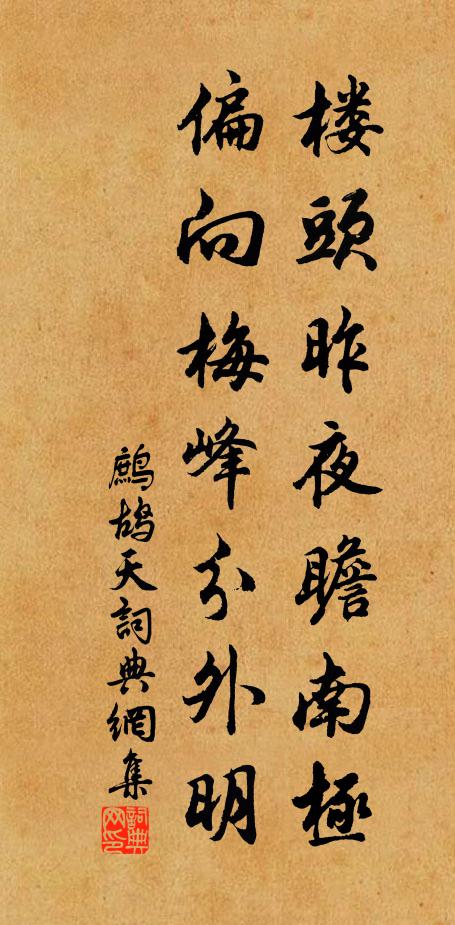 楼頭昨夜瞻南極
偏向梅峰分外明
鷓鴣天詞典網集
詞典网印